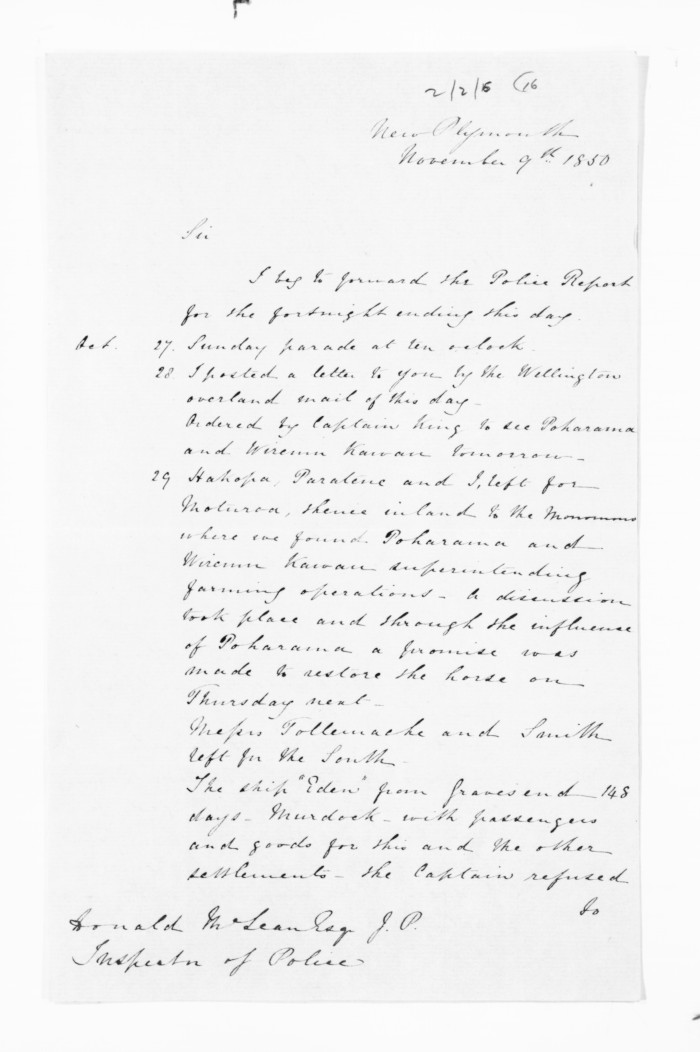 2/2/6 (16
New Plymouth
November 9th 1850
Sir
I beg to forward the Police Report
for the fortnight ending this day.
Oct. 27. Sunday parade at ten oclock.
28. I posted a letter to you by the Wellington
overland mail of this day -
Ordered by Captain King to see Poharama
and Wiremu Kawau tomorrow -
29 Hakopa, Paratene and I, left for
Moturoa, thence inland to the
where we found Poharama and
Wiremu Kawau superintending
farming operations - A discussion
took place and through the influence
of Poharama a promise was
made to restore the horse on
Thursday next -
Messrs Tollemache and Smith
left for the South -
The ship "Eden" from Gravesend 148
days - Murdock - with passengers
and goods for this and the other
settlements - the Captain refused
to
Donald McLean Esq J.P.
Inspector of Police